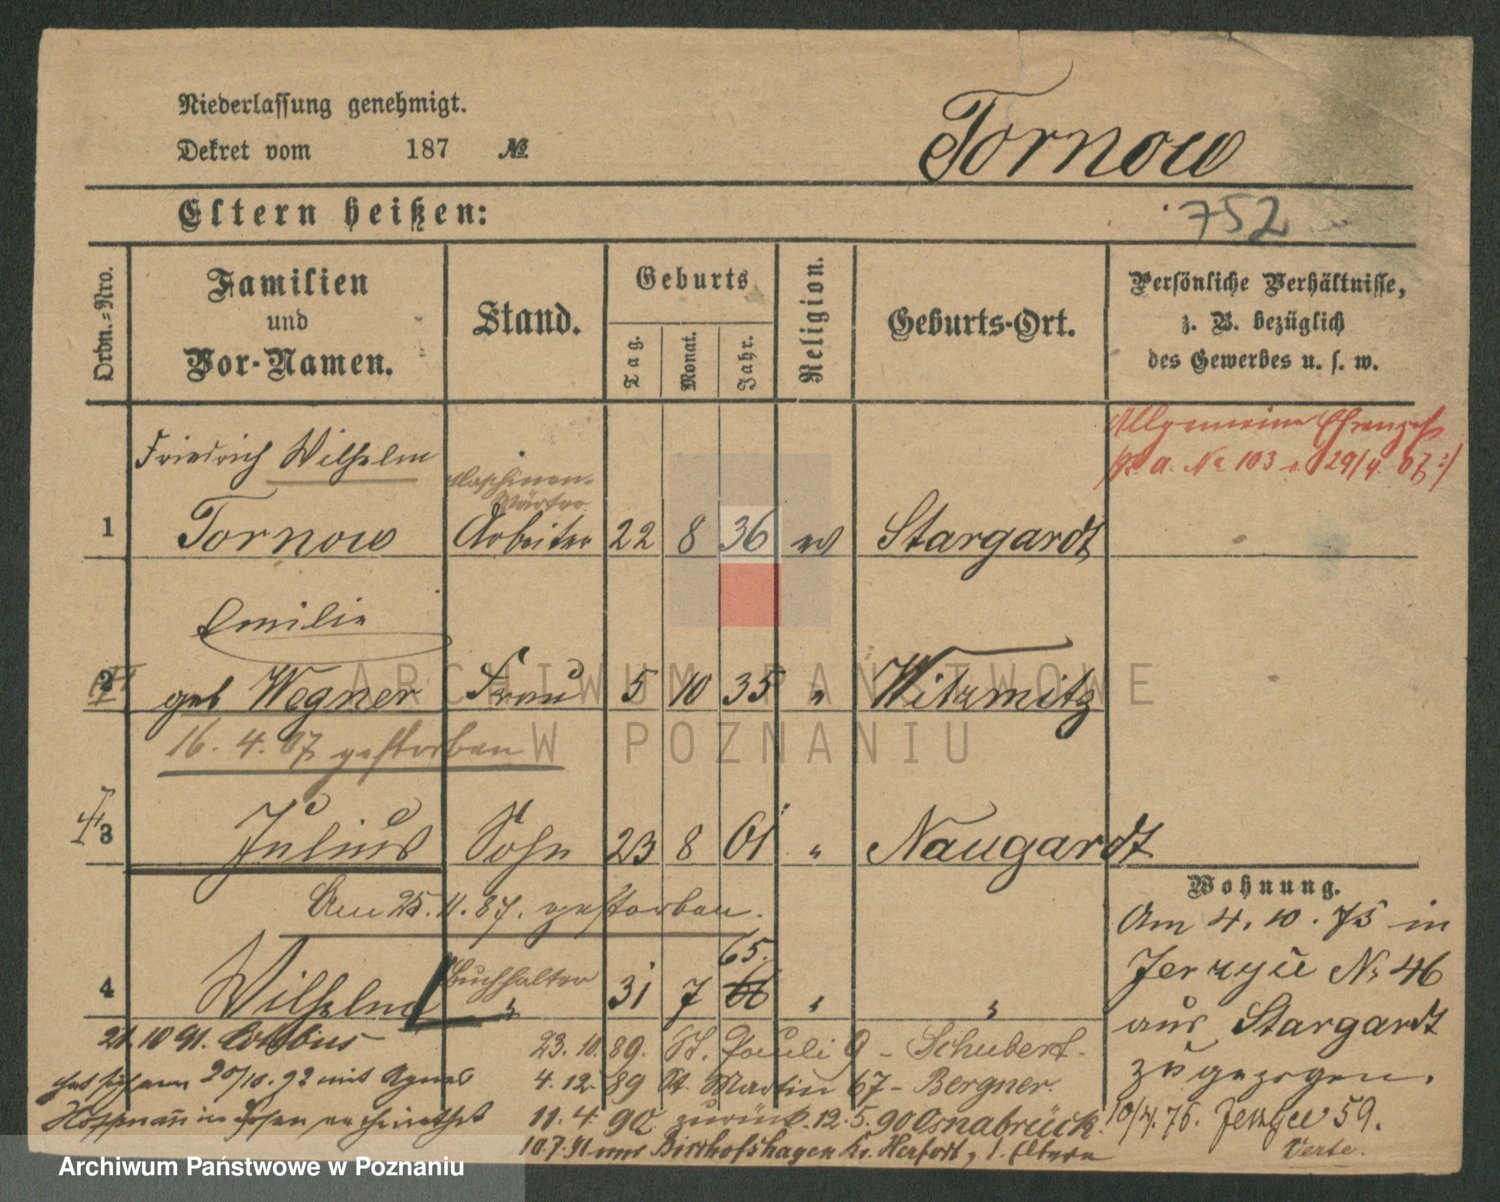 Niederlassung genehmigt.
Dekret vom 187 №
Tornow
Eltern heißen:
752
Ordn.-Nro.
Familien
und
Vor-Namen.
Stand.
Geburts
Tag.
Monat.
Jahr.
Religion.
Geburts-Ort.
Persönliche Verhältnisse,
z. B. bezüglich
des Gewerbes u. s. w.
Allgemeine
No 103 29/4 07
Friedrich Wilhelm
Maschinen-
Wärter
1 Tornow Arbeiter 22 8 36 ev Stargardt
Emilie
2 geb Wegner Frau 5 10 35 " Witzmitz
16. 4. 07 gestorben
3 Julius Sohn 23 8 61 " Naugardt
Am 25. 11. 87. gestorben.
Wohnung.
Am 4. 10. 75 in
Jerzyce No 46
aus Stargardt
zugezogen.
10/4. 76. Jerzyce 59.
Verte.
65.
Buchhalter
4 Wilhelm " 31 7 66 " "
21. 10 91. Cottbus
hat sich am 20/10. 92 mit Agnes
Hoffmann in Posen verheirathet
23. 10. 89. St. Pauli 9 - Schubert.
4. 12. 89 St. Martin 67 - Bergner.
11. 4. 90 zurück. 12. 5. 90 Osnabrück.
10. 7. 91 aus Bischofshagen Kr. Herford, z. Eltern
ARCHIWUM PAŃSTWOWE
W POZNANIU
Archiwum Państwowe w Poznaniu